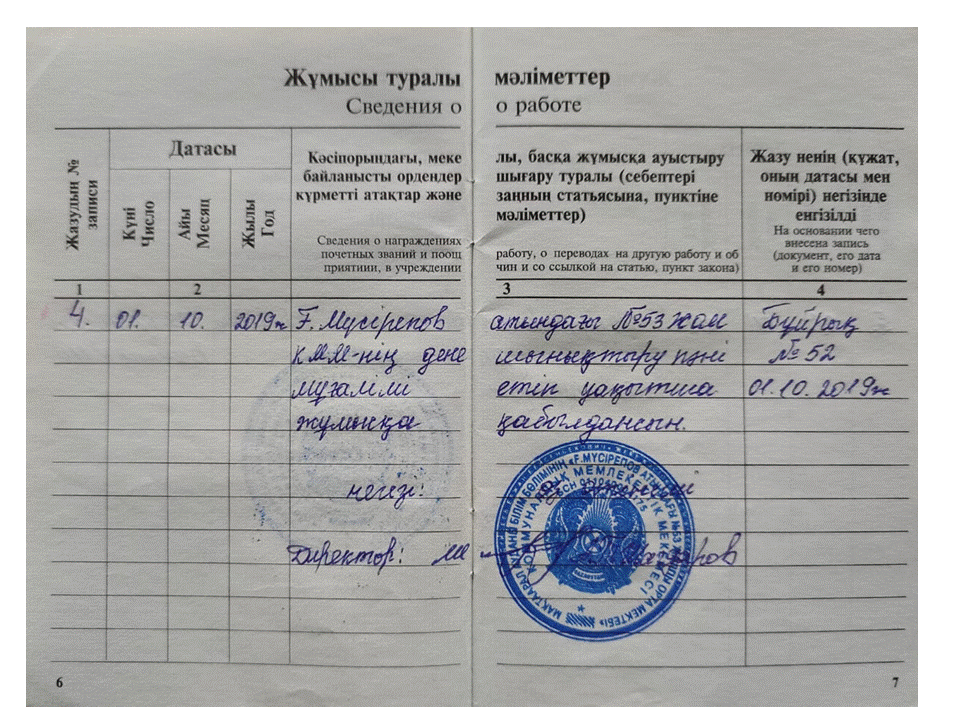 Жұмысы туралы мәліметтер
Сведения о о работе
Жазудың № записи
Датасы
Күні Число
Айы Месяц
Жылы Год
Кәсіпорындағы, меке
байланысты ордендер
күрметті атақтар және
Сведения о награждениях
почетных званий и поощ
приятиии, в учреждении
лы, басқа жұмысқа ауыстыру
шығару туралы (себептері
заңның статьясына, пунктіне
мәліметтер)
работу, о переводах на другую работу и об
чин и со ссылкой на статью, пункт закона)
Жазу ненің (құжат,
оның датасы мен
нөмірі) негізінде
енгізілді
На основании чего
внесена запись
(документ, его дата
и его номер)
1 2 3 4
4. 01. 10. 2019ж Ғ. Мүсірепов атындағы №53 жалп Бұйрық
КММ-нің дене шынықтыру пәні № 52
мұғалімі етіп уақытша 01.10.2019ж
жұмысқа қабылдансын.
негізі:
Директор:
МАҚТААРАЛ АУДАНЫ БІЛІМ БӨЛІМІНІҢ «Ғ.МҮСІРЕПОВ АТЫНДАҒЫ №53 ЖАЛПЫ ОРТА МЕКТЕБІ»
КОММУНАЛДЫҚ МЕМЛЕКЕТТІК МЕКЕМЕСІ
6 7